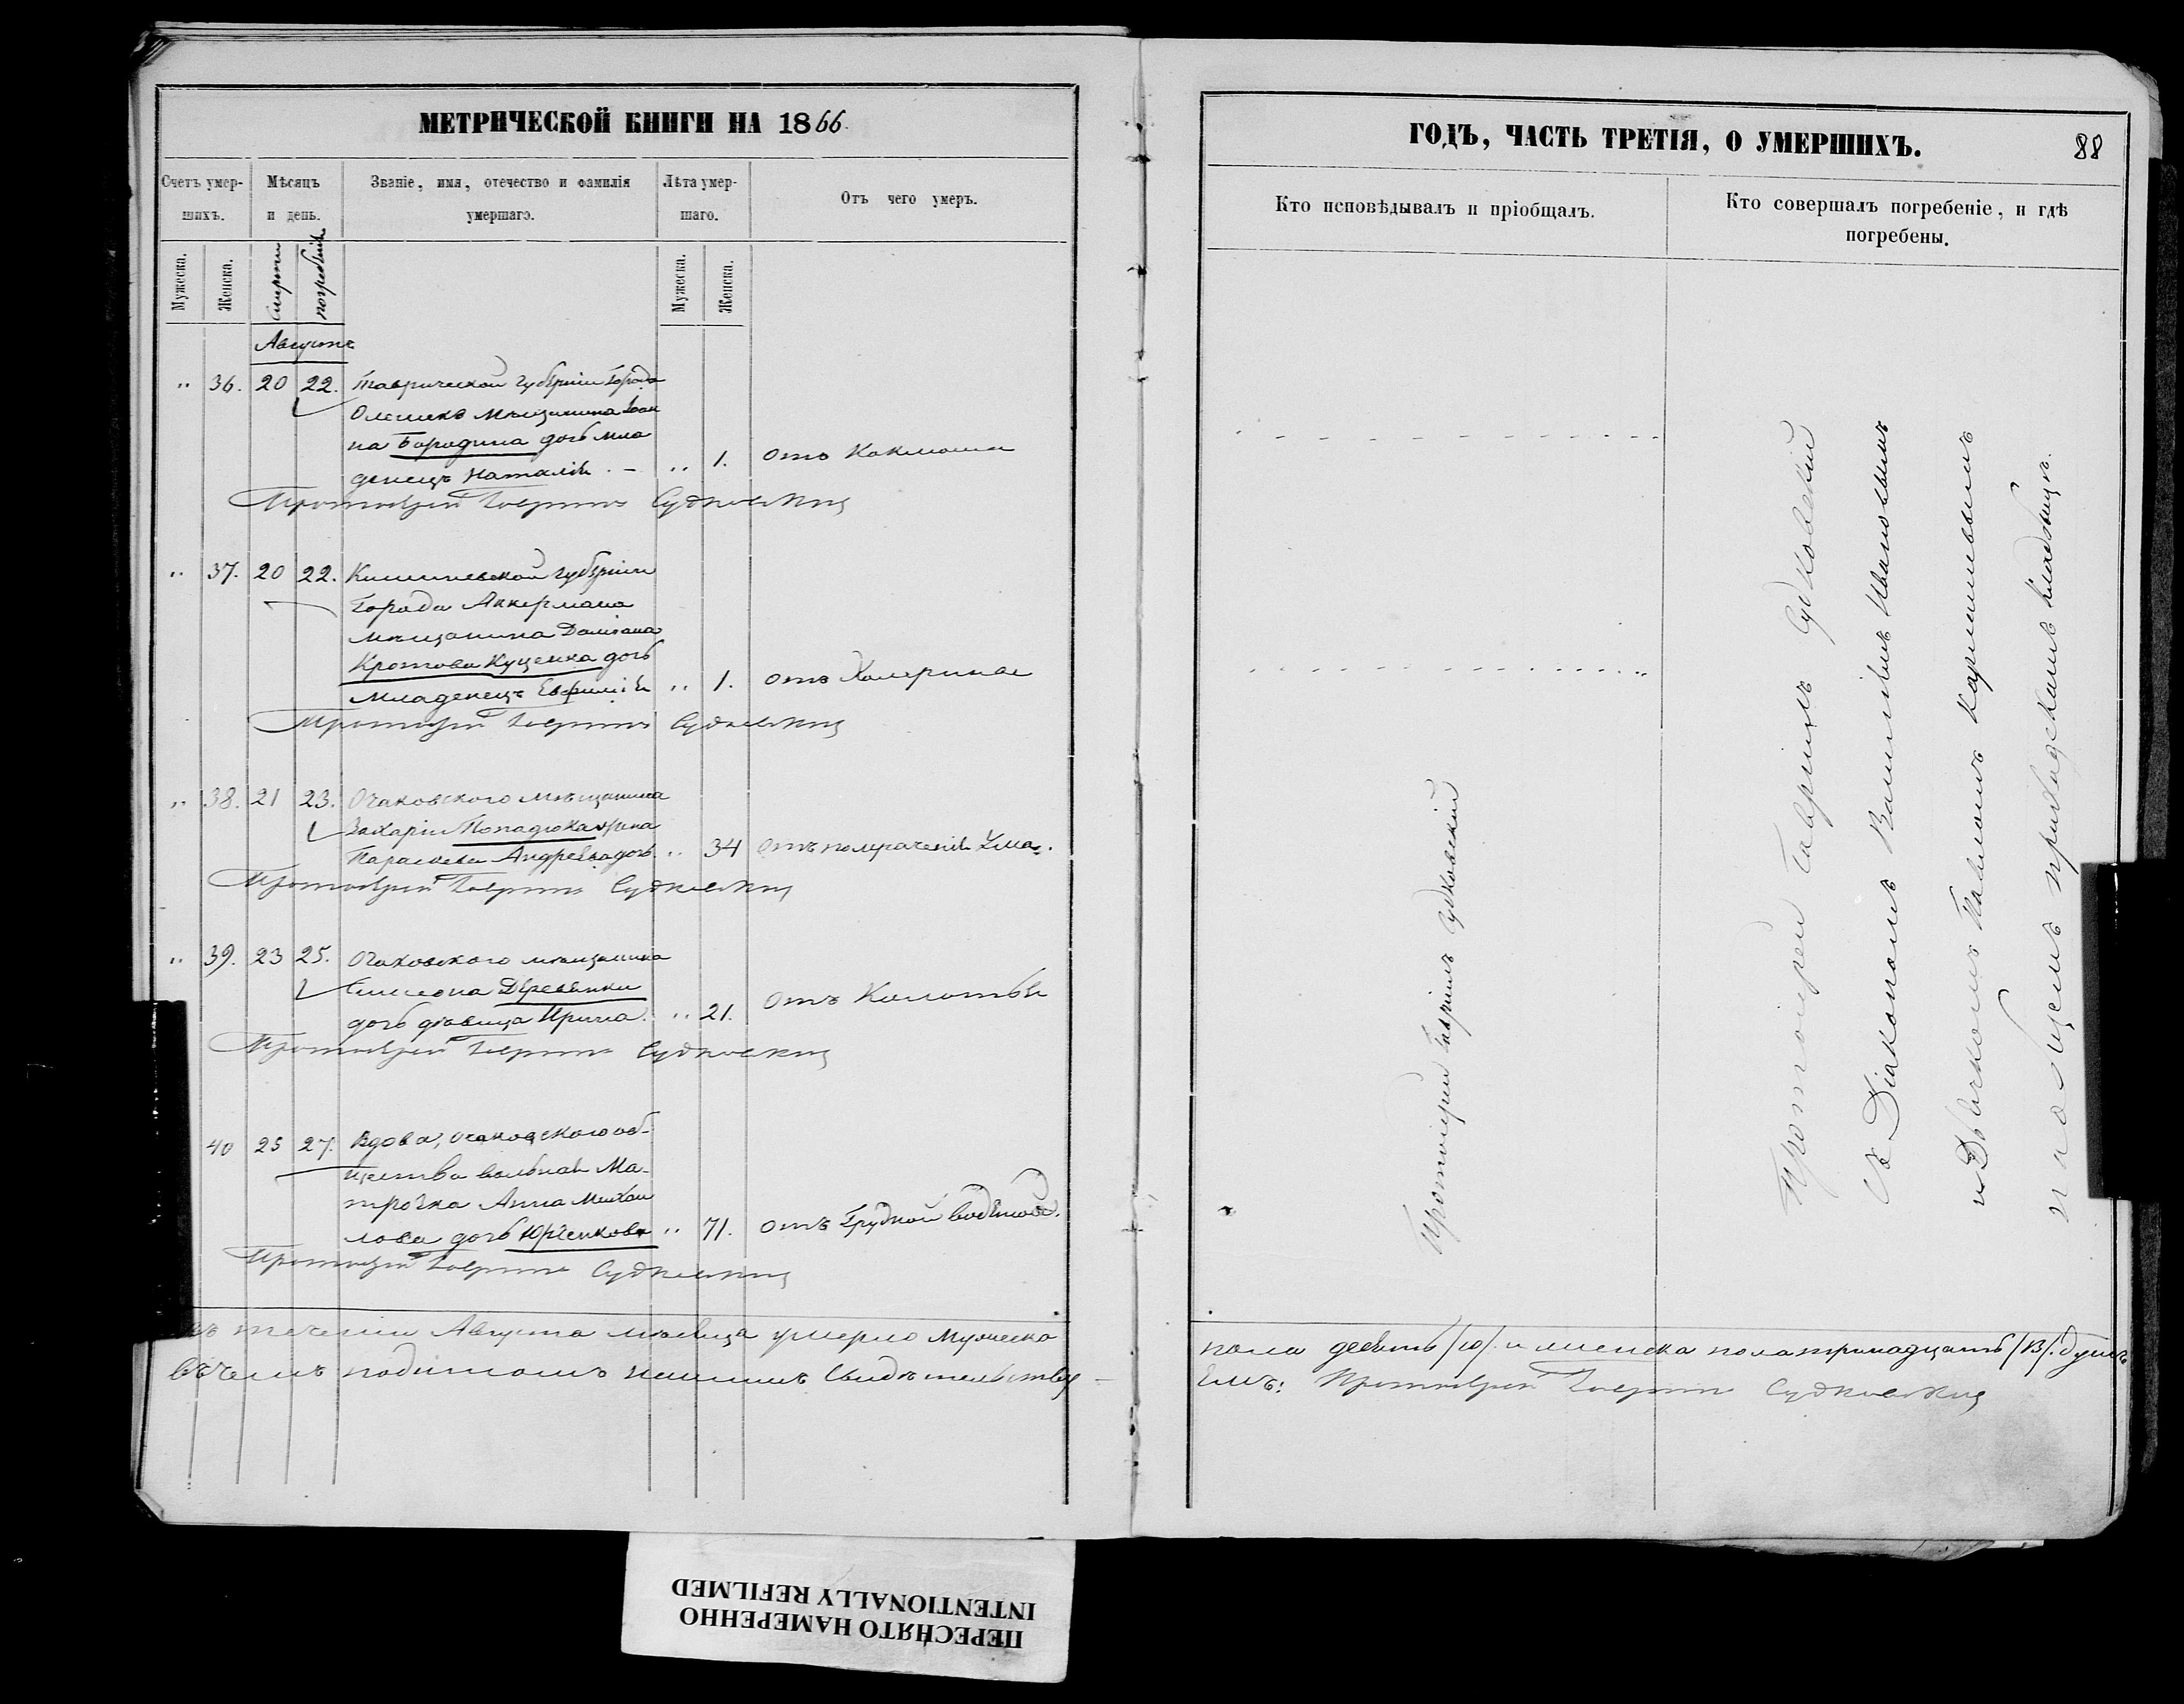 МЕТРИЧЕСКОЙ КНИГИ НА 1866.
Счетъ умер-
шихъ.
Мѣсяцъ
и день.
Званіе, имя, отечество и фамилія
умершаго.
Лѣта умер-
шаго.
Отъ чего умеръ.
Мужеска.
Женска.
Смерти
погребенія
Мужеска.
Женска.
Августъ
" 36. 20 22. Таврической Губерніи Города
Олешекъ Мѣщанина Іоан
на Бородина дочь мла
денецъ Наталія . – " 1. Отъ Коклюша
Протоіерей Гавріилъ Судковскій
" 37. 20 22. Кишиневской Губерніи
Города Аккермана
мѣщанина Даміана
Кротова Куценка дочь
Младенецъ Евфимія " 1. Отъ Холерина
Протоіерей Гавріилъ Судковскій
" 38. 21 23. Очаковского мѣщанина
Захаріи Попадюка жена
Параскева Андреева дочь. " 34 Отъ помраченія Ума.
Протоіерей Гавріилъ Судковскій
" 39. 23 25. Очаковского мѣщанина
Симеона Деревянки
дочь дѣвица Ирина. " 21. Отъ Колотья
Протоіерей Гавріилъ Судковскій
40 25 27. Вдова, Очаковского об-
щества вольная Ма-
трозка Анна Михаи
лова дочь Юрченкова " 71. Отъ Грудной водяной.
Протоіерей Гавріилъ Судковскій
въ теченіи Августа мѣсяца умерло Мужеска
въ чемъ подписомъ нашимъ Свидѣтельству
ГОДЪ, ЧАСТЬ ТРЕТІЯ, О УМЕРШИХЪ.
88
Кто исповѣдывалъ и пріобщалъ.
Кто совершалъ погребеніе, и гдѣ
погребены.
Протоіерей Гавріилъ Судковскій
Протоіерей Гавріилъ Судковскій
Съ Діакономъ Василіемъ Ивановымъ
и Дьячкомъ
на общемъ приходскомъ кладбищѣ.
пола десять /10/. и женска пола тринадцать /13/. душъ
емъ: Протоіерей Гавріилъ Судковскій
ПЕРЕСНЯТО НАМЕРЕННО
INTENTIONALLY REFILMED